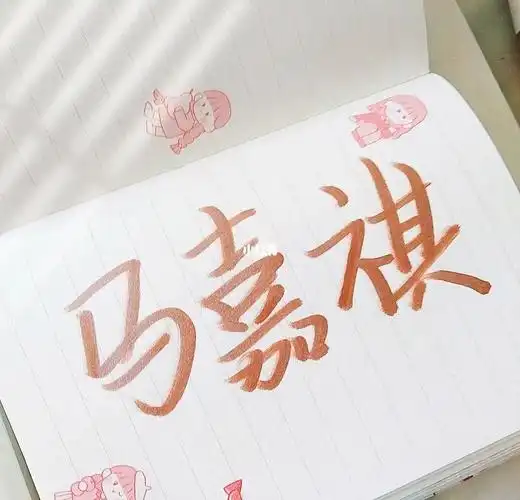 马嘉祺